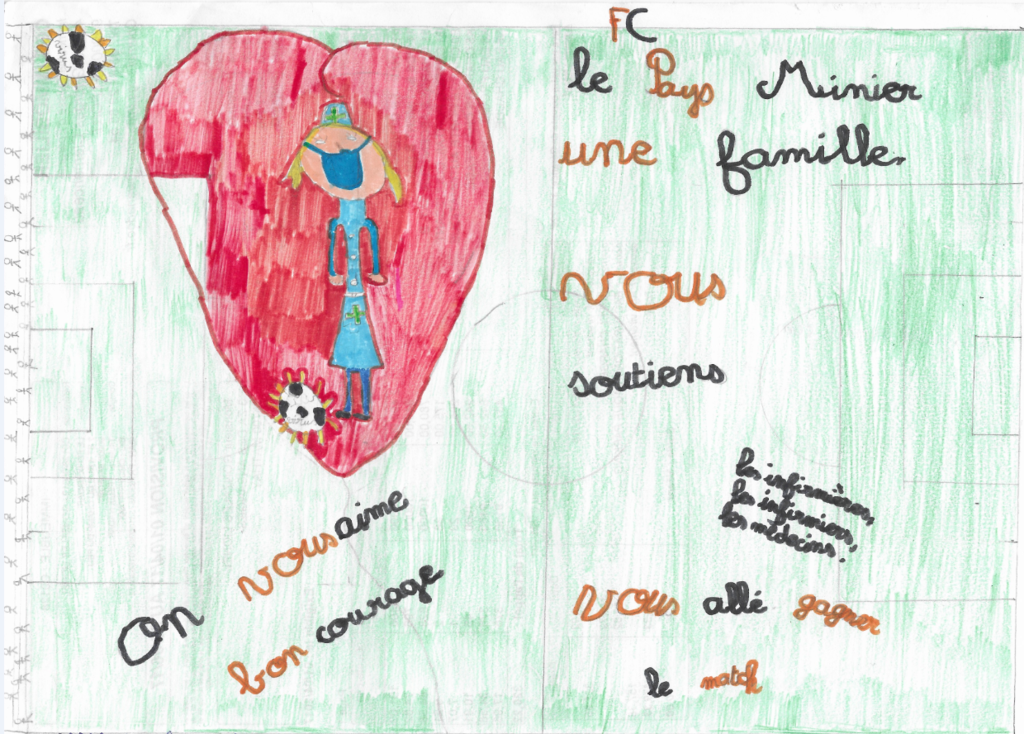 virus
FC
le Pays Minier
une famille.
vous
soutiens
les infirmières,
les infirmiers,
les médecins.
On vous aime
bon courage
vous allé gagner
le match